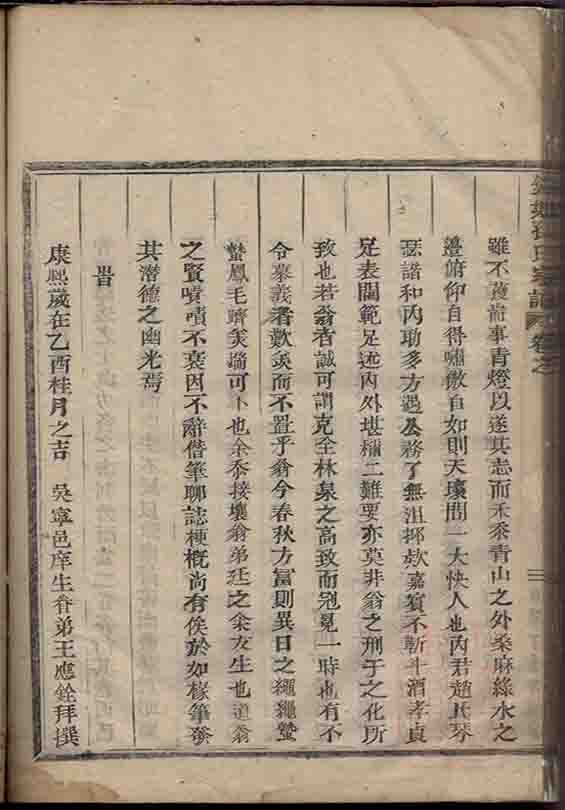 孫氏宗譜 卷之
雖不護耑事青燈以遂其志而禾黍青山之外桑麻綠水之
邊俯仰自得嘯傲自如則天壤間一大快人也內君趙氏琴
瑟諧和內助多方遇公務了無沮抑欵嘉賓不靳斗酒孝貞
足表閫範足述內外堪稱二難要亦莫非翁之刑于之化所
致也若翁者誠可謂克全林泉之高致而冠冕一時也有不
令慕義者歎羨而不置乎翁今春秋方富則異日之繩繩蟄
蟄鳳毛躋美端可卜也余忝接壤翁弟廷之余友生也道翁
之賢嘖嘖不衰因不辭僭筆聊誌梗槪尚有俟於如椽筆發
其潛德之幽光焉
旹
康熙歲在乙酉桂月之吉 吳寧邑庠生眷弟王應銓拜撰